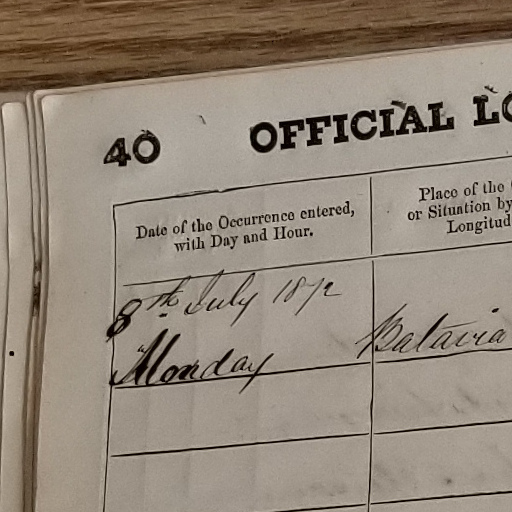 40 OFFICIAL LO
Date of the Occurrence entered,
with Day and Hour.
Place of the
or Situation by
Longitud
8th July 1872
Monday
Batavia